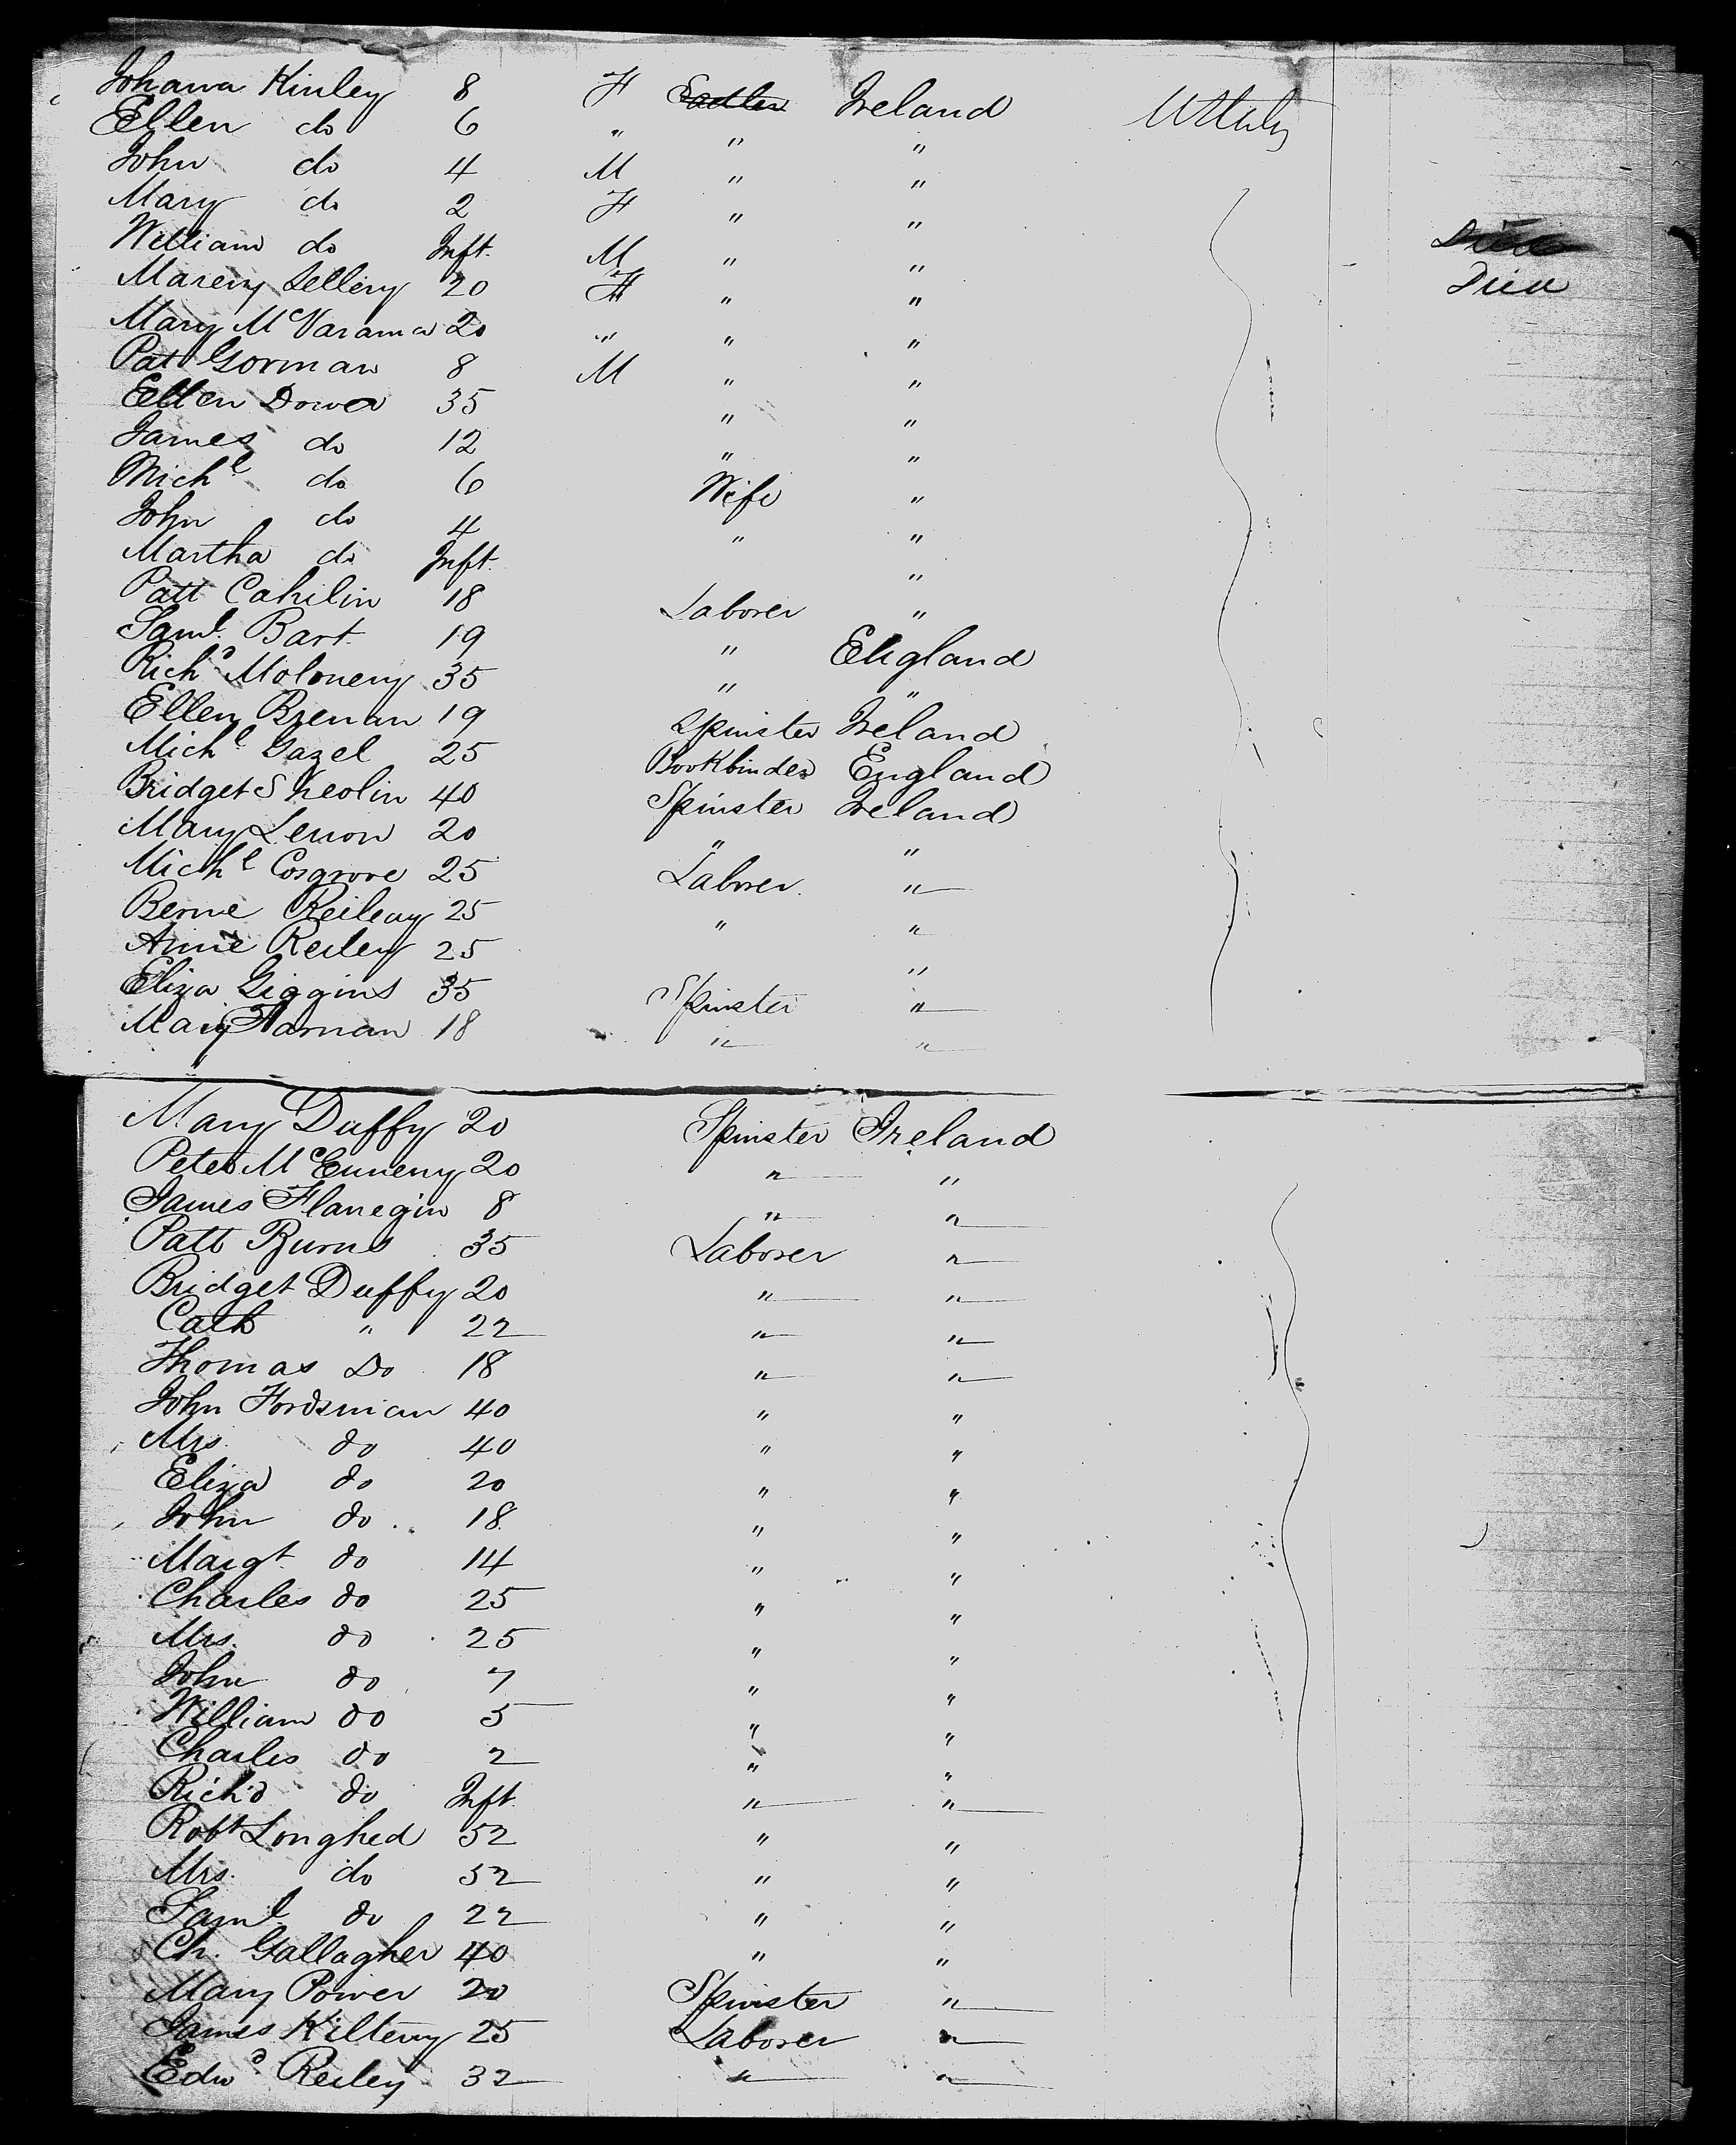 Johana Kinley 8 F Sadler Ireland
Ellen do 6 " " "
John do 4 M " "
Mary do 2 F " "
William do Inft. M " " Died
Mareny Sellery 20 F " " Died
Mary McVarama 20 " " "
Patt Gorman 8 M " "
Ellen Dower 35 " "
James do 12 " "
Michl do 6 Wife "
John do 4 " "
Martha do Inft. "
Patt Cahilin 18 Laborer "
Saml. Bart 19 " England
Richd Moloney 35 " "
Ellen Brenan 19 Spinster Ireland
Michl Gazel 25 Bookbinder England
Bridget Skeolin 40 Spinster Ireland
Mary Lenon 20 " "
Michl Cosgrove 25 Laborer "
Berne Reileay 25 " "
Anne Reiley 25 "
Eliza Giggins 35 Spinster "
Mary Harnan 18 " "
Mary Duffy 20 Spinster Ireland
Peter McEnneny 20 " "
James Flanegin 8 " "
Patt Burns 35 Laborer "
Bridget Duffy 20 " "
Cath " 22 " "
Thomas Do 18 " "
John Fordsman 40 " "
Mrs. do 40 " "
Eliza do 20 " "
John do 18 " "
Margt do 14 " "
Charles do 25 " "
Mrs. do 25 " "
John do 7 " "
William do 5 " "
Charles do 2 " "
Rich'd do Inft " "
Robt Longhed 52 " "
Mrs. do 52 " "
Saml. do 22 " "
Ch. Gallagher 40 " "
Mary Power 20 Spinster "
James Kilteny 25 Laborer "
Edwd Reiley 32 " "